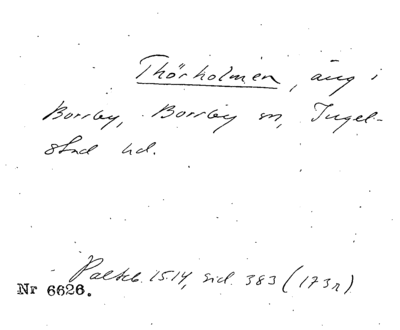 Thörholmen, äng i
Borrby, Borrby sn, Ingel-
stad hd.
Palteb. 1514, sid. 383 (173r)
Nr 6626.